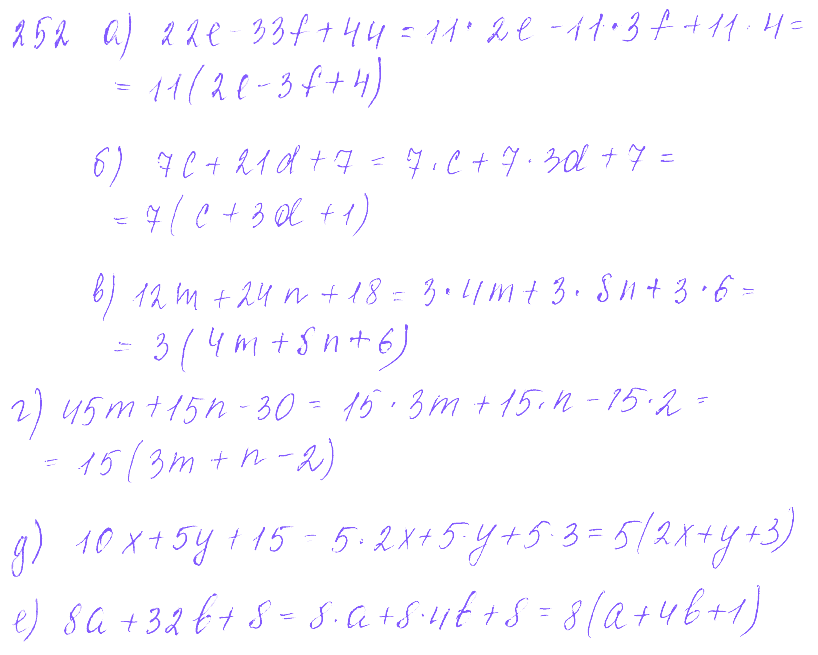 252 а) 22e - 33f + 44 = 11 · 2e - 11 · 3f + 11 · 4 =
= 11(2e - 3f + 4)
б) 7c + 21d + 7 = 7 · c + 7 · 3d + 7 =
= 7(c + 3d + 1)
в) 12m + 24n + 18 = 3 · 4m + 3 · 8n + 3 · 6 =
= 3(4m + 8n + 6)
г) 45m + 15n - 30 = 15 · 3m + 15 · n - 15 · 2 =
= 15(3m + n - 2)
д) 10x + 5y + 15 - 5 · 2x + 5 · y + 5 · 3 = 5(2x + y + 3)
е) 8a + 32b + 8 = 8 · a + 8 · 4b + 8 = 8(a + 4b + 1)